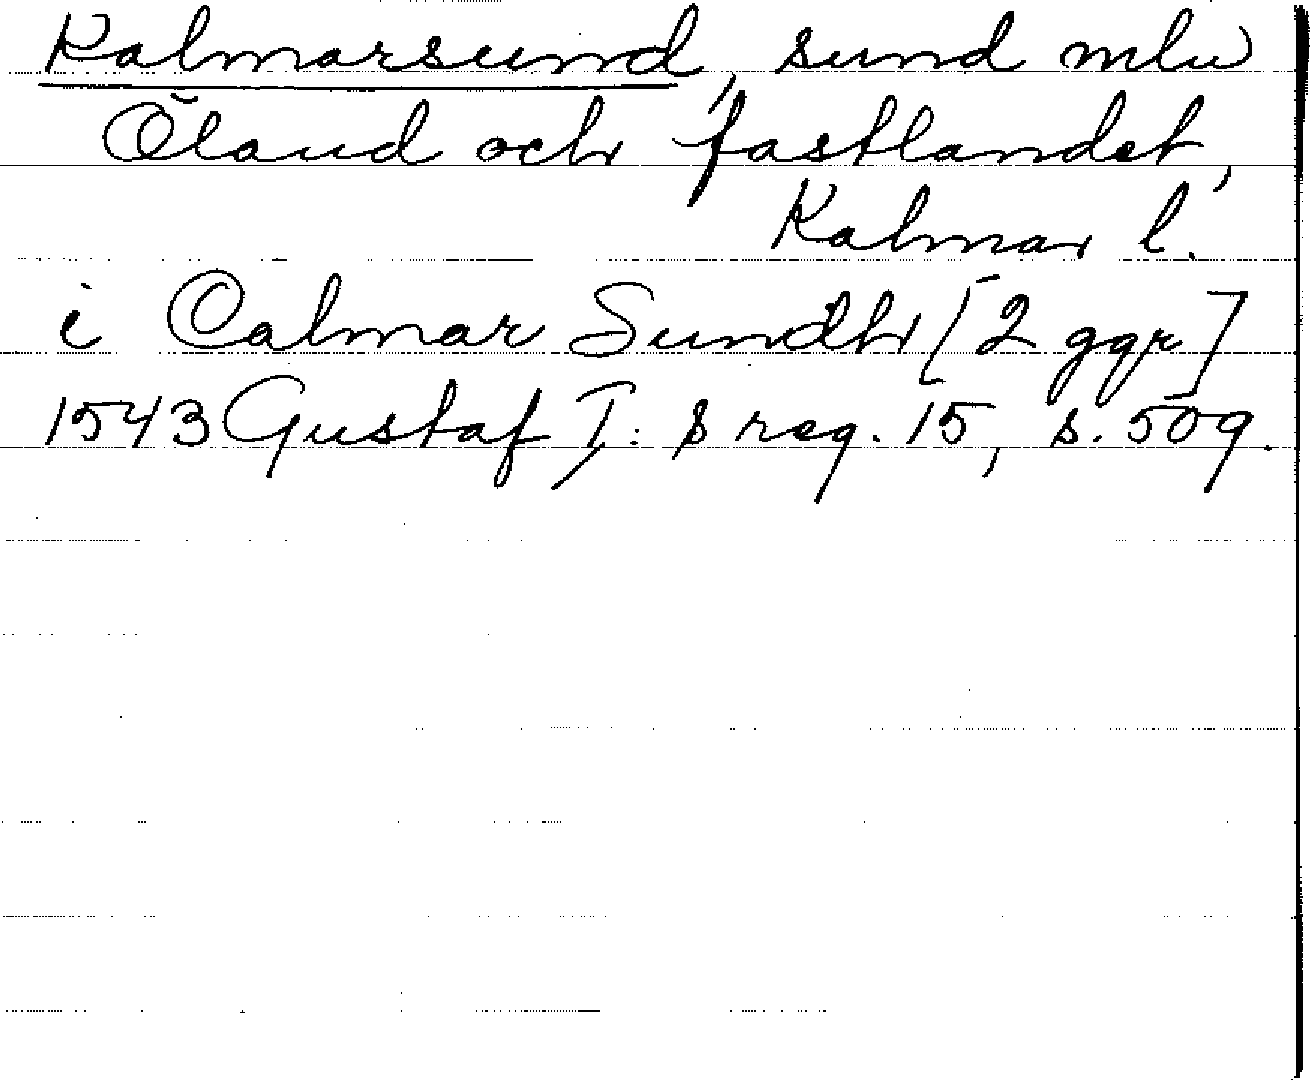 Kalmarsund, sund mlw
Öland och fastlandet,
Kalmar l.
i Calmar Sundh [2 ggr]
1543 Gustaf I: s reg. 15, s. 509.